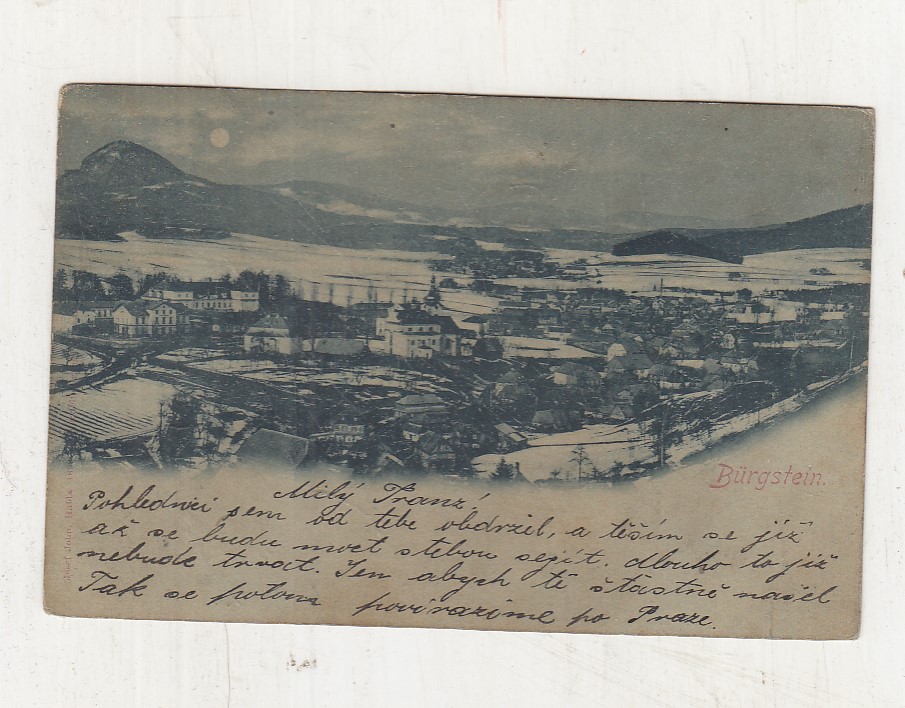 Bürgstein.
Milý Franz!
Pohlednici sem od tebe obdržel, a těším se již
až se budu moct stebou sejít. dlouho to již
nebude trvat. Jen abych tě štästně našel
Tak se potom povírazíme po Praze.